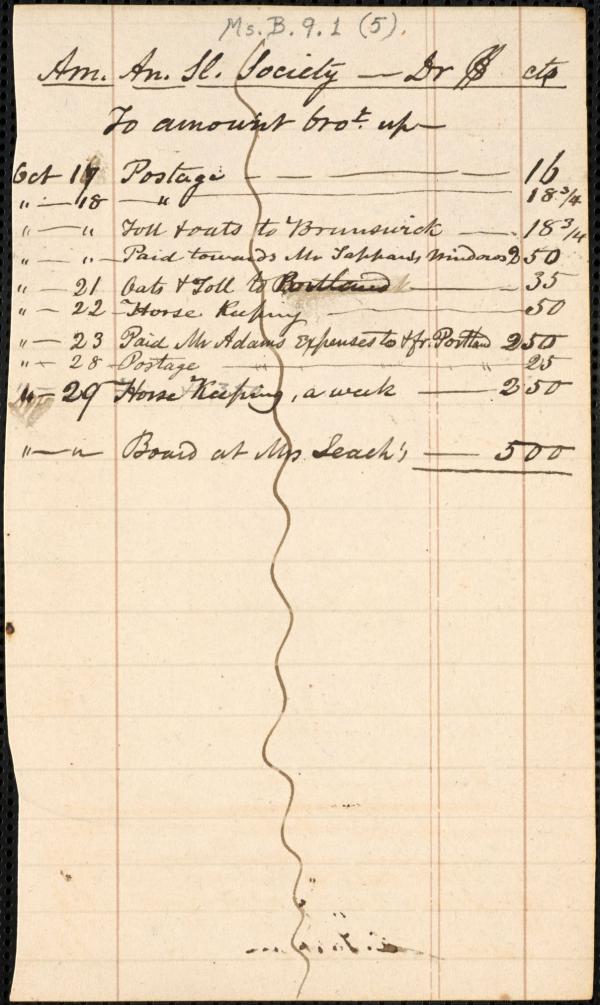 Ms. B. 9. 1 (5).
Am. An. Sl. Society — Dr $ cts
To amount brot. up —
Oct 17 Postage — — — 16
" — 18 — " — 18 3/4
" — " Toll & oats to Brunswick — 18 3/4
" — " — Paid towards Mr Tappan's windows 2 50
" — 21 Oats & Toll to Portland — 35
" — 22 — Horse Keeping — 50
" — 23 Paid Mr Adams expenses to & fr. Portland 2 50
" — 28 — Postage — " — " — 25
" — 29 Horse Keeping, a week — 2 50
" — " Board at Mrs Leach's — 5 00